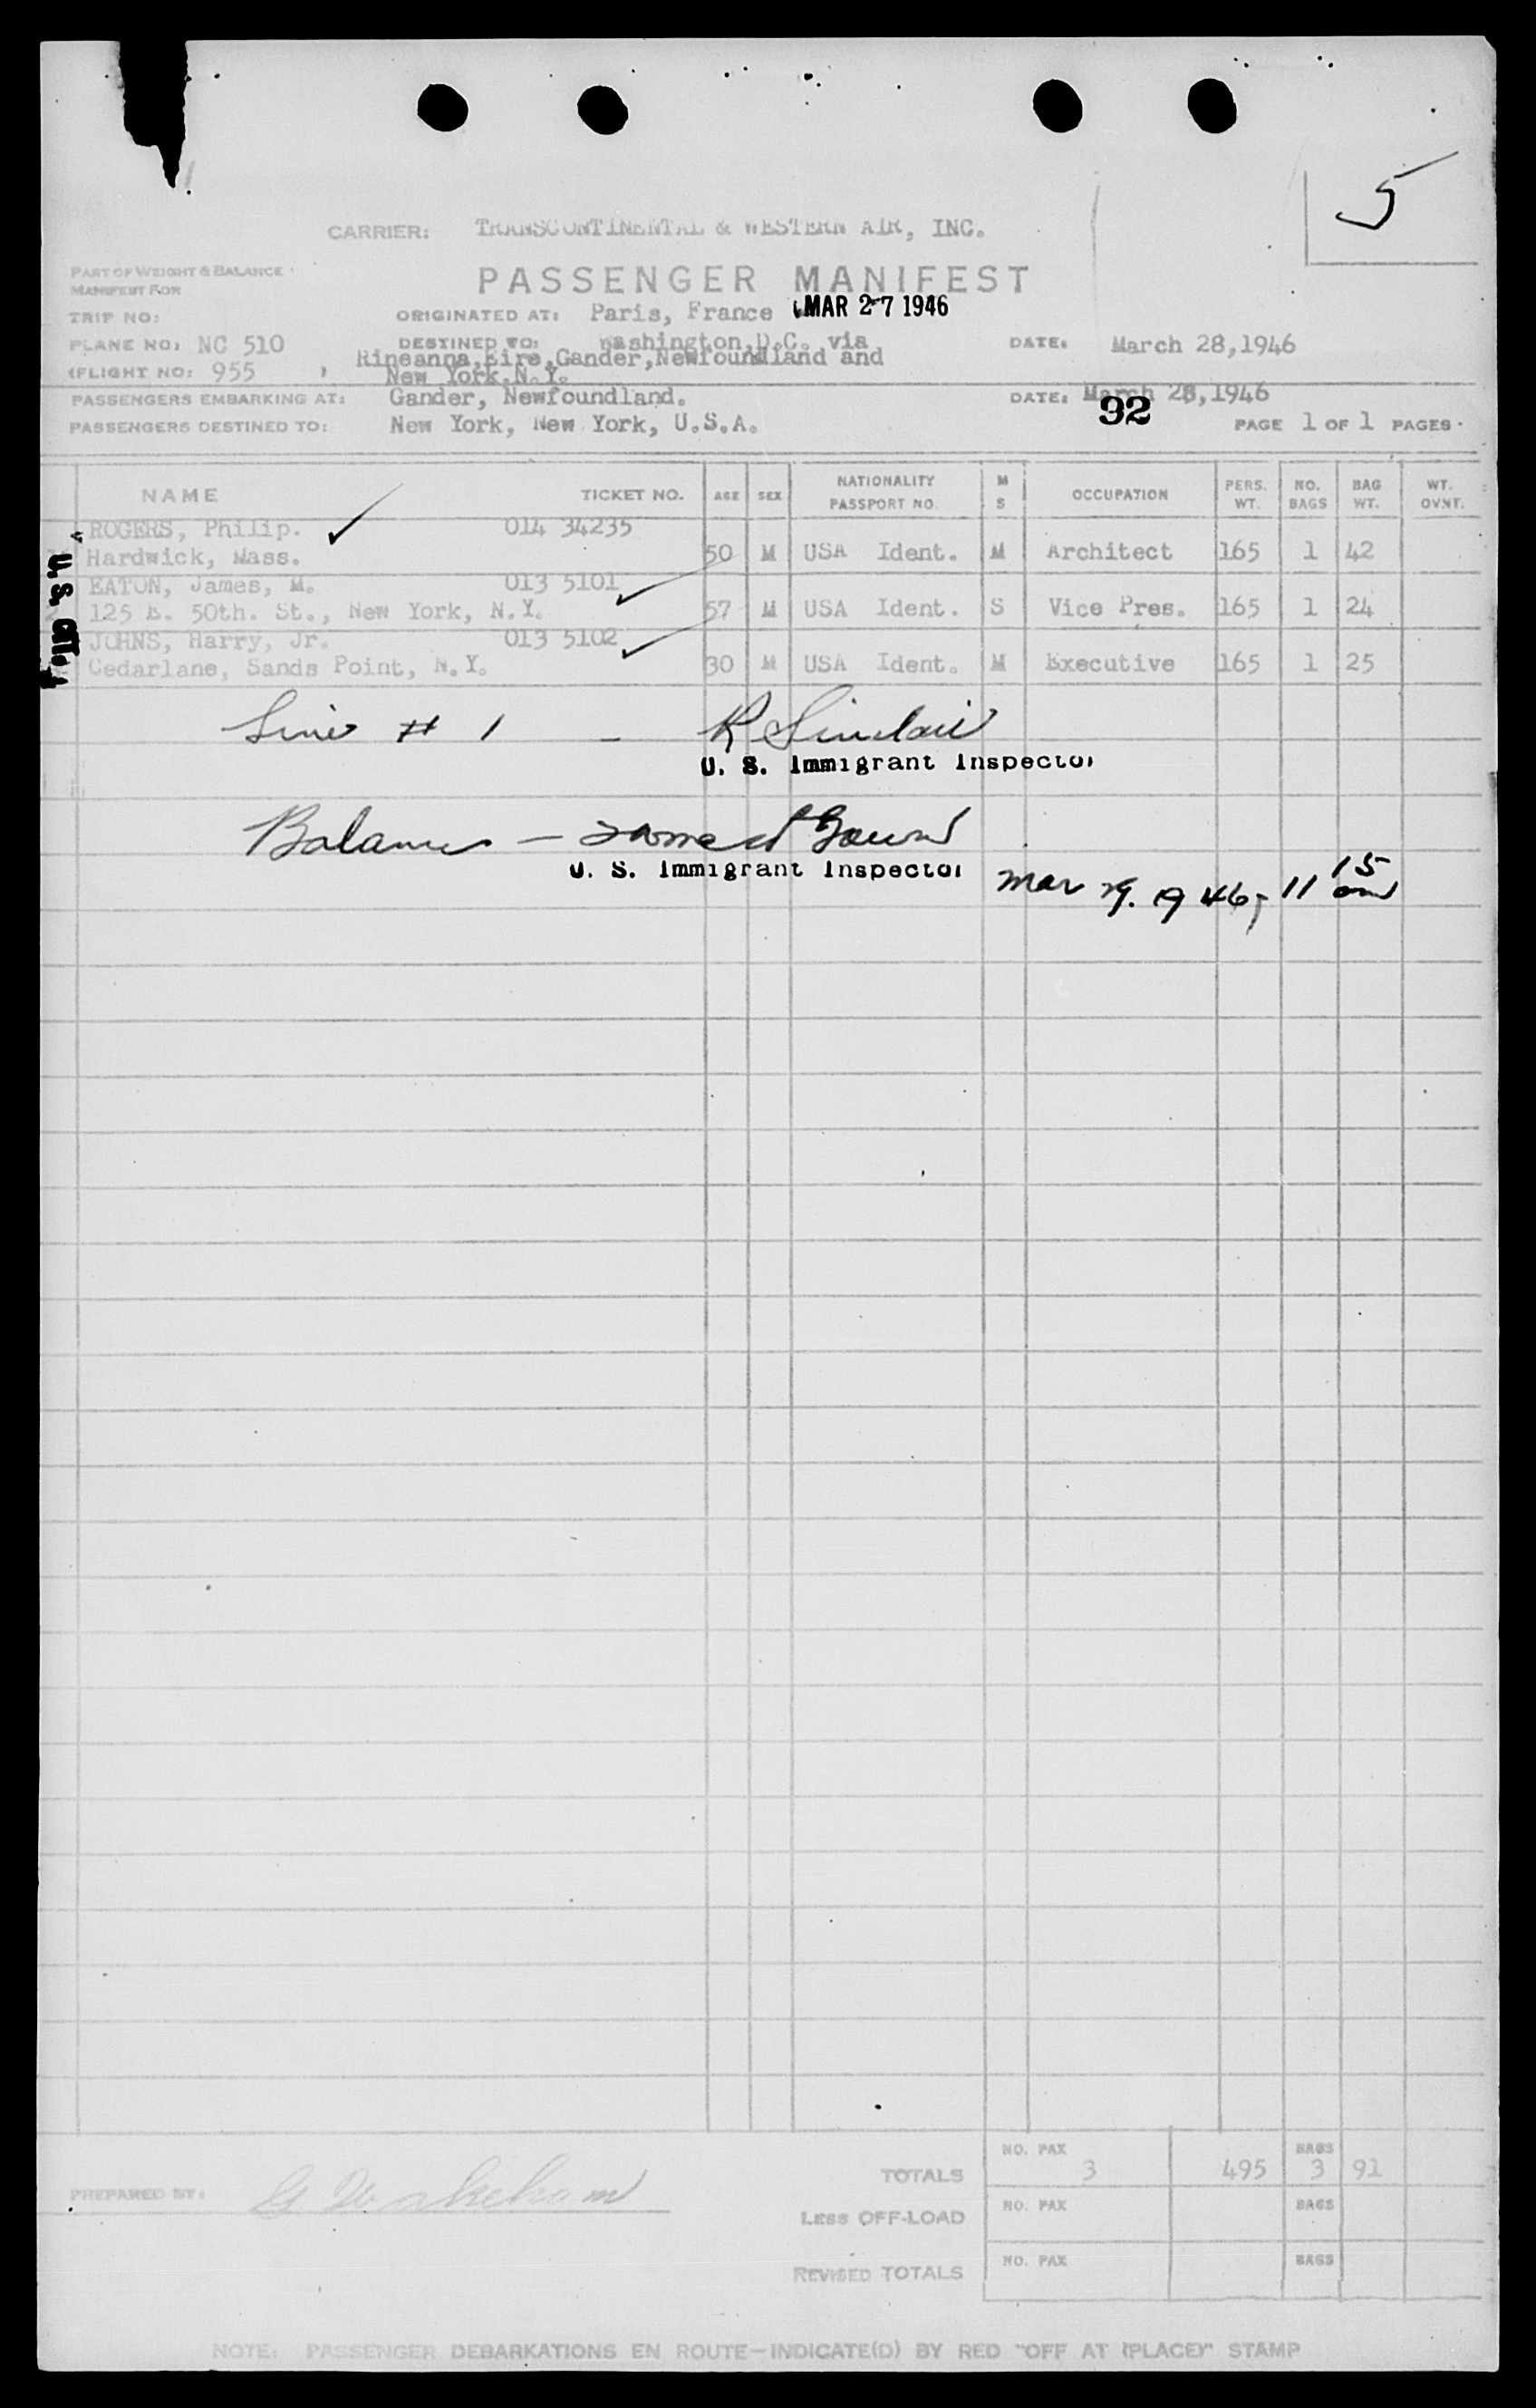 5
CARRIER: TRANSCONTINENTAL & WESTERN AIR, INC.
PART OF WEIGHT & BALANCE
MANIFEST FOR
PASSENGER MANIFEST
TRIP NO:
ORIGINATED AT: Paris, France MAR 27 1946
PLANE NO: NC 510
DESTINED TO: Washington,D.C. via
DATE: March 28,1946
Rineanna,Eire,Gander,Newfoundland and
(FLIGHT NO: 955
New York,N.Y.
PASSENGERS EMBARKING AT: Gander, Newfoundland.
DATE: March 28,1946
92
PASSENGERS DESTINED TO: New York, New York, U.S.A.
PAGE 1 OF 1 PAGES
NAME TICKET NO. AGE SEX NATIONALITY PASSPORT NO. M S OCCUPATION PERS. WT. NO. BAGS BAG WT. WT. OVNT.
ROGERS, Philip. 014 34235
Hardwick, Mass. 50 M USA Ident. M Architect 165 1 42
EATON, James, M. 013 5101
125 E. 50th. St., New York, N.Y. 57 M USA Ident. S Vice Pres. 165 1 24
JOHNS, Harry, Jr. 013 5102
Cedarlane, Sands Point, N.Y. 30 M USA Ident. M Executive 165 1 25
U.S.
Line # 1 - R Sinclair
U. S. Immigrant Inspector
Balance -
U. S. Immigrant Inspector
Mar 29. 1946, 11 15 am
TOTALS NO. PAX 3 495 BAGS 3 91
PREPARED BY: G Wakeham
LESS OFF-LOAD NO. PAX BAGS
REVISED TOTALS NO. PAX BAGS
NOTE: PASSENGER DEBARKATIONS EN ROUTE—INDICATE(D) BY RED "OFF AT (PLACE)" STAMP